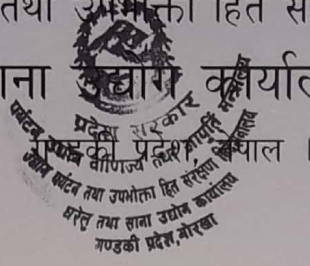 तथा उपभोक्ता हित सं
ाना उद्योग कार्याल
गण्डकी प्रदेश, नेपाल ।
प्रदेश सरकार
पर्यटन, उद्योग वाणिज्य तथा आपूर्ति मन्त्रालय
उद्योग पर्यटन तथा उपभोक्ता हित संरक्षण
घरेलु तथा साना उद्योग कार्यालय
गण्डकी प्रदेश,गोरखा